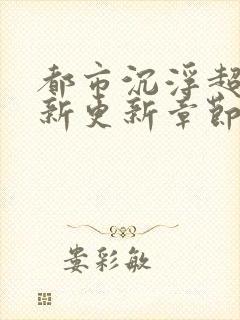 都市沉浮超
新更新章节
娄彩敏